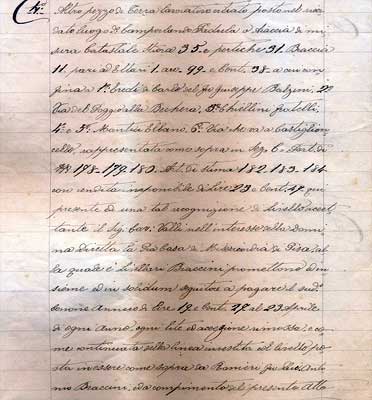 4°.
Altro pezzo di Terra lavorativo vitiato posto nel sud
dato luogo di Campolando Fredula o Araccia di mi
sura Catastale Stiora 35. e pertiche 31. Braccia
11. pari ad Ettari 1. are 99. e Cent. 38. a cui con
fina a 1°. Eredi di Carlo del fu Giuseppe Balzini, 2°.
Via del Poggio alla Bechera, 3°. Chiellini fratelli,
4°. e 5°. Mantia Ettano, 6°. Via che va a Castiglion
cello, rappresentata come sopra in Sez. C. Part. di
N. 178. 179. 180. Art. di stima 182. 183. 184.
con rendita imponibile di Lire 23 e Cent. 47. qui
presente di una tal recognizione di livello accet
tante il Sig. Cav. Valli nell'interesse della domi
na diretta la Pia Casa di Misericordia di Pisa, al
la quale i livellari Braccini promettono d'in
sieme ed in solidum seguita a pagare il sud.
Canone Annuo di Lire 19. e Cent. 27. al 23 Aprile
di ogni Anno, ogni lite ed eccezione rimossa, e co
me continuata nella linea investita il livello, po
sta in essere come sopra da Ranieri fu Anto
nio Braccini, ed a compimento del presente Atto